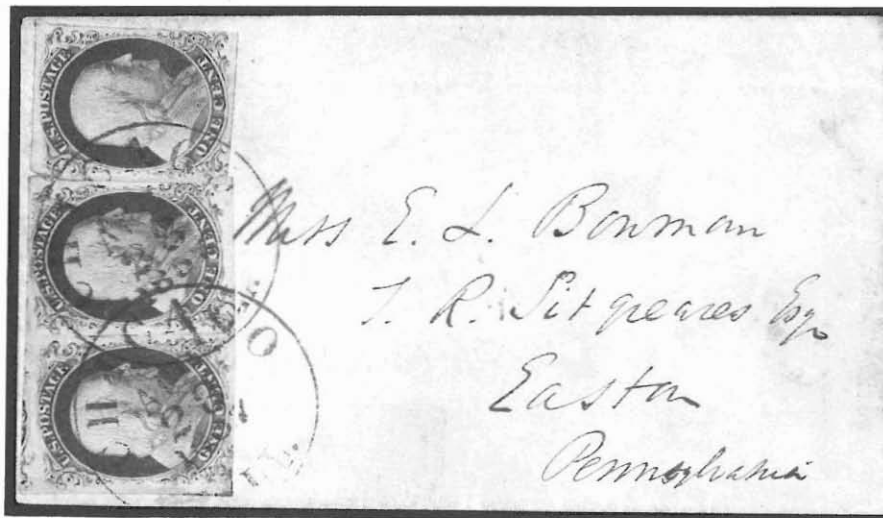 U.S. POSTAGE
ONE CENT
U.S. POSTAGE
ONE CENT
U.S. POSTAGE
ONE CENT
11
Miss E. L. Bowman
T. R. Sitgreaves Esq
Easton
Pennsylvania